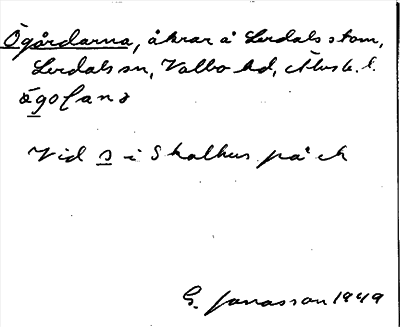 Ögårdarna, åkrar å Lerdals stom,
Lerdals sn, Valbo hd, Älvsb. l.
ö̀goɭanɘ
Vid s i Skalhus på ek
G. Jonasson 1949